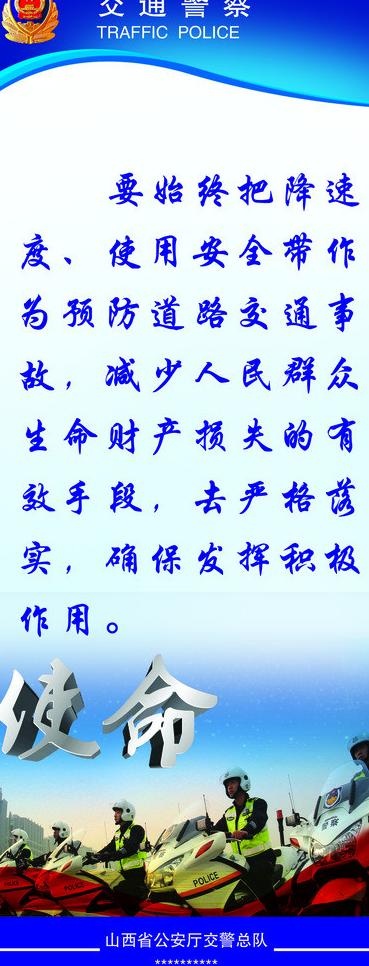 交通警察
TRAFFIC POLICE
要始终把降速
度、使用安全带作
为预防道路交通事
故，减少人民群众
生命财产损失的有
效手段，去严格落
实，确保发挥积极
作用。
使命
POLICE
POLICE
警察
山西省公安厅交警总队
**********